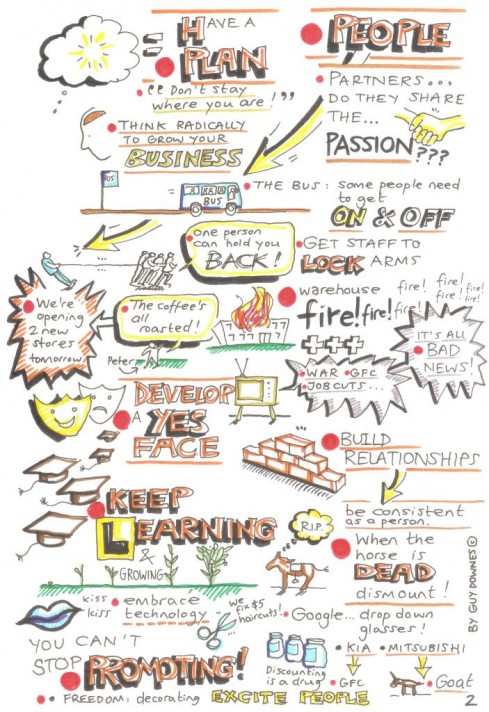 HAVE A
PLAN
"Don't stay
where you are!"
THINK RADICALLY
TO GROW YOUR
BUSINESS
PEOPLE
PARTNERS...
DO THEY SHARE
THE...
PASSION???
BUS
BUS
THE BUS: some people need
to get
ON & OFF
One person
can hold you
BACK!
GET STAFF TO
LOCK ARMS
We're
opening
2 new
stores
tomorrow!
The coffee's
all
roasted!
Peter
warehouse
fire! fire! fire! fire! fire! fire! fire! fire!
+++
WAR GFC
JOB CUTS...
IT'S ALL
BAD
NEWS!
DEVELOP
A YES
FACE
BUILD
RELATIONSHIPS
be consistent
as a person.
KEEP
LEARNING
&
GROWING
R.I.P.
When the
horse is
DEAD
dismount!
kiss
kiss
embrace
technology
we
fix $5
haircuts!
Google... drop down
glasses!
YOU CAN'T
STOP PROMOTING!
FREEDOM: decorating EXCITE PEOPLE
Discounting
is a drug
KIA
GFC
MITSUBISHI
Goat
BY GUY DOWNES ©
2